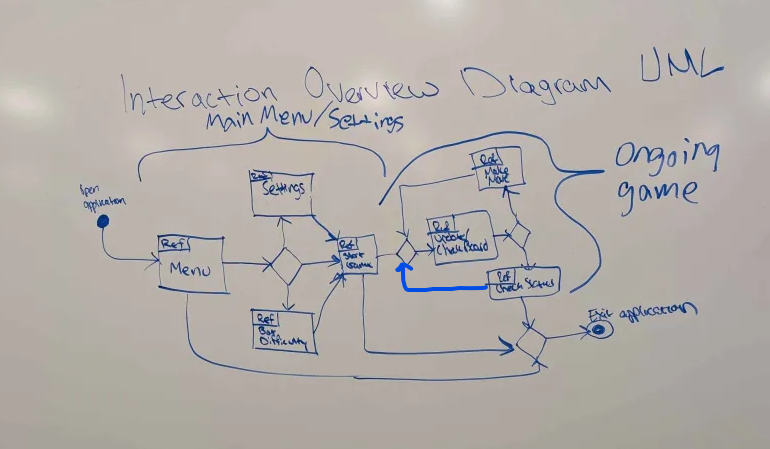 Interaction Overview Diagram UML
Main Menu/Settings
Ongoing
game
Open
application
Ref
Menu
Ref
Settings
Ref
Bot
Difficulty
Ref
Start
Game
Ref
Make
Move
Ref
Update/
Check Board
Ref
Check Status
Exit application